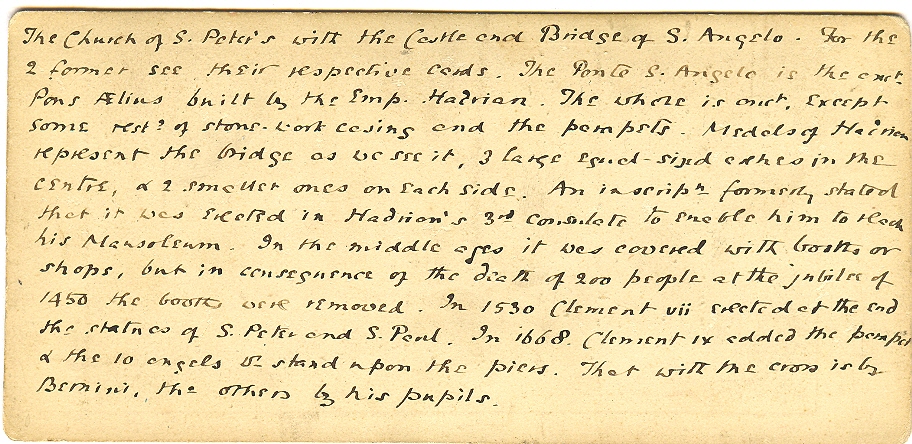 The Church of S. Peter's with the Castle and Bridge of S. Angelo. For the
2 former see their respective cards. The Ponte S. Angelo is the anct.
Pons Ælius built by the Emp. Hadrian. The whole is anct, except
some restns of stone-work casing and the parapets. Medals of Hadrian
represent the bridge as we see it, 3 large equal-sized arches in the
centre, & 2 smaller ones on each side. An inscripn formerly stated
that it was erected in Hadrian's 3rd consulate to enable him to reach
his Mausoleum. In the middle ages it was covered with booths or
shops, but in consequence of the death of 200 people at the jubilee of
1450 the booths were removed. In 1530 Clement vii erected at the end
the statues of S. Peter and S. Paul. In 1668. Clement ix added the parapet
& the 10 angels wh stand upon the piers. That with the cross is by
Bernini, the others by his pupils.